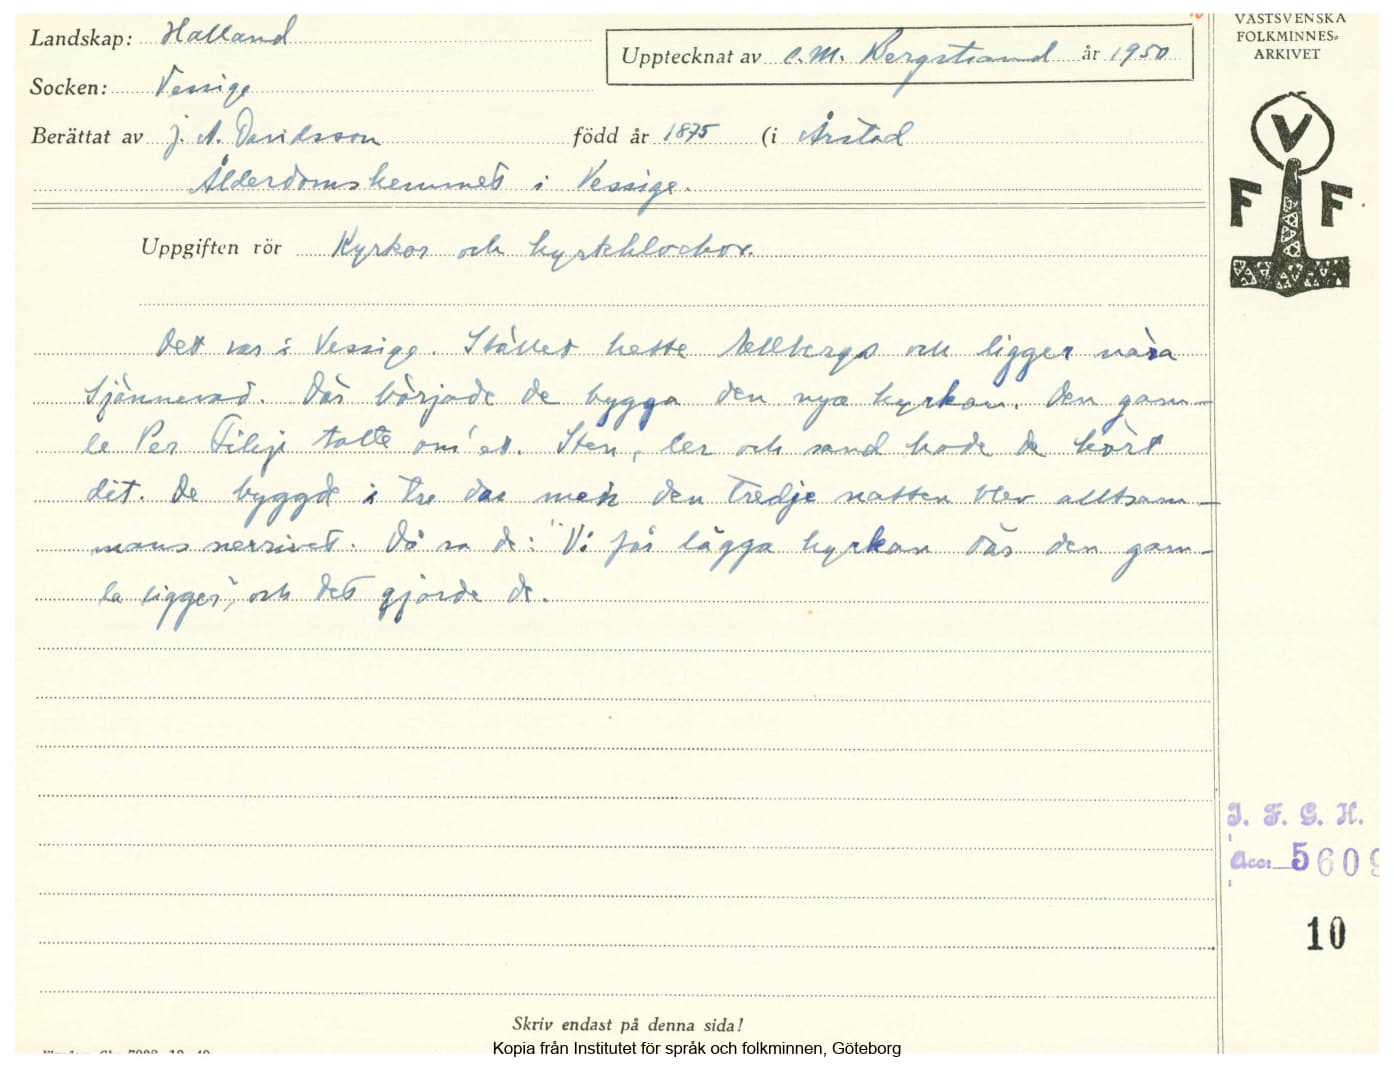 Landskap: Halland
Upptecknat av C. M. Bergstrand år 1950
Socken: Vessige
Berättat av J. A. Davidsson född år 1875 (i Årstad
Ålderdomshemmet i Vessige.
Uppgiften rör Kyrkor och kyrkklockor.
Dett var i Vessige. Stället hette och ligger nära
Sjönnevad. Där började de bygga den nya kyrkan. Den gam-
le Per Filip talte om'et. Sten, ler och sand hade de kört
dit. De byggde i tre dar men den tredje natten blev alltsam-
mans nerrivet. Då sa de: "Vi får lägga kyrkan där den gam-
la ligger", och det gjorde de.
Skriv endast på denna sida!
Kopia från Institutet för språk och folkminnen, Göteborg
VÄSTSVENSKA
FOLKMINNES-
ARKIVET
V
F F
I. F. G. H.
Acc. 5609
10